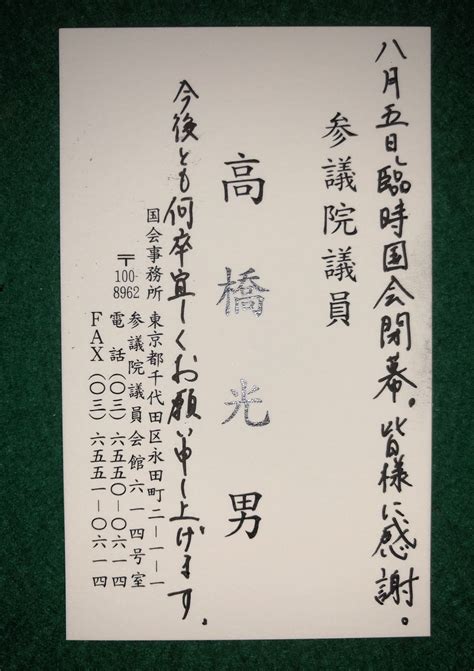 八月五日、臨時国会閉幕。皆様に感謝。
参議院議員
高橋光男
今後とも何卒宜しくお願い申し上げます。
国会事務所
〒100-8962
東京都千代田区永田町二ー一ー一
参議院議員会館六一四号室
電話(〇三)六五五〇ー〇六一四
FAX(〇三)六五五一ー〇六一四